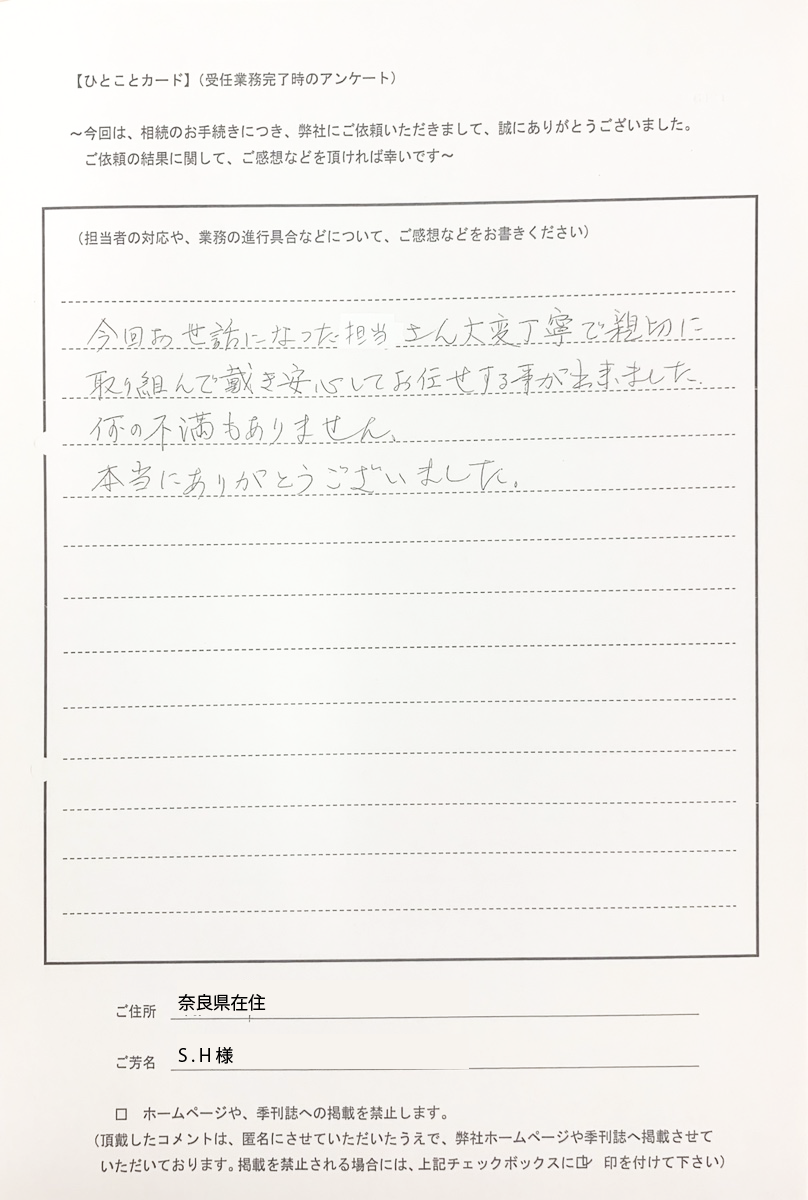 【ひとことカード】（受任業務完了時のアンケート）
～今回は、相続のお手続きにつき、弊社にご依頼いただきまして、誠にありがとうございました。
ご依頼の結果に関して、ご感想などを頂ければ幸いです～
（担当者の対応や、業務の進行具合などについて、ご感想などをお書きください）
今回お世話になった担当さん大変丁寧で親切に
取り組んで戴き安心してお任せする事が出来ました。
何の不満もありません。
本当にありがとうございました。
ご住所 奈良県在住
ご芳名 S.H様
□ ホームページや、季刊誌への掲載を禁止します。
（頂戴したコメントは、匿名にさせていただいたうえで、弊社ホームページや季刊誌へ掲載させて
いただいております。掲載を禁止される場合には、上記チェックボックスに☑ 印を付けて下さい）